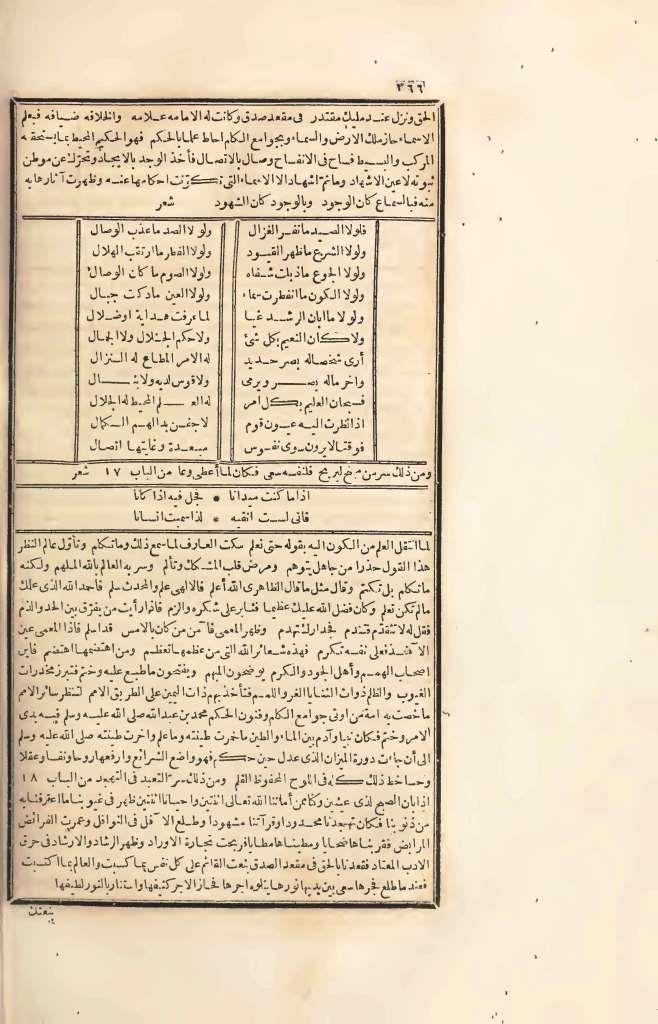 ٣٦٦
الحق ونزل عند مليك مقتدر في مقعد صدق وكانت له الامامه علامه والخلافه ضيافه فبعلم
الاسماء حاز ملك الارض والسماء وبجوامع الكلم احاط علما بالحكم فهو الحكيم المحيط بما يستحقه
المركب والبسيط فساح في الانفساح وصال بالاتصال فأخذ الوجد بالايجاد وتحرك عن موطن
ثبوته لاعين الاشهاد وما ثم اشهاد الا الاسماء التي تكونت احكامها عنه وظهرت آثارها به
منه فبالسماع كان الوجود وبالوجود كان الشهود شعر
فلولا الصيد ما نفر الغزال ولولا الصد ما عذب الوصال
ولولا الشرع ما ظهر القيود ولولا الفطر ما ارتقب الهلال
ولولا الجوع ما ذبلت شفاه ولولا الصوم ما كان الوصال
ولولا الكون ما انفطرت سماء ولولا العين ما دكت جبال
ولولا ما ابان الرشد غيا لما عرفت هداية او ضلال
ولا كان النعيم بكل شئ ولا حكم الجلال ولا الجمال
أرى شخصا له بصر حديد له الامر المطاع له النزال
وآخر ما له بصر ويرمي ولا قوس لديه ولا نبال
فسبحان العليم بكل امر له العلم المحيط له الجلال
اذا نظرت اليه عيون قوم لا جفن بدا لهم الكمال
فوقتا لا يرون سوى نفوس مبعدة وغايتها اتصال
ومن ذلك سر من منح ليربح فلنفسه سعى فكان لما أعطى وعا من الباب ١٧ شعر
اذا ما كنت ميدانا • فجل فيه اذا كانا
فاني لست انفيه • لذا سميت انسانا
لما انتقل العلم من الكون اليه بقوله حتى نعلم سكت العارف لما سمع ذلك وما تكلم وتأول عالم النظر
هذا القول حذرا من جاهل يتوهم ومرض قلب المشكك وتألم وسر به العالم بالله الملهم ولكنه
ما تكلم بل تكتم وقال مثل ما قال الظاهري الله أعلم فالالهي علم والمحدث سلم فأحمد الله الذي علمك
ما لم تكن تعلم وكان فضل الله عليك عظيما فثابر على شكره والزم فاذا رأيت من يفرق بين الحدوالذم
فقل له لا تتقدم فتندم فجدارك تهدم وظهر المعمى فآمن من كان بالامس قد اسلم فاذا المعمى عين
الآ فعلى نفسه تكرم فهذه شعائر الله التي من عظمها تعظم ومن اهتضمها اهتضم فاين
اصحاب الهمم وأهل الجود والكرم يوضحون المبهم ويفتحون ما طبع عليه وختم فتبرز مخدرات
الغيوب والظلم ذوات الثنايا الغر واللمم فتأخذ بهم ذات اليمين على الطريق الامم لتنظر سائر الامم
ما خصت به امة من اوتى جوامع الكلم وفنون الحكم محمد بن عبد الله صلى الله عليه وسلم فبه بدى
الامر وختم فكان نبيا وآدم بين الماء والطين ما خمرت طينته وما علم واخرت طينته صلى الله عليه وسلم
الى أن جاءت دورة الميزان الذي عدل حين حكم فهو واضع الشرائع ورافعها روحا ونفسا وعقلا
وحسا خط ذلك كله في اللوح المحفوظ القلم ومن ذلك سر التعبد في التهجد من الباب ١٨
اذا بان الصبح لذي عينين وكنا ممن أماتنا الله تعالى اثنتين واحيانا اثنتين ظهر في غيوبنا ما اعترفنا به
من ذنوبنا فكان تهجدنا محدودا وقرآننا مشهودا وطلع الآفل في النوافل وعمرت الفرائض
المرابض فقربناها ضحايا ومطيناها مطايا فربحت تجارة الاوراد وظهر الرشاد والارشاد في حرق
الادب المعتاد فقعدنا بالحق في مقعد الصدق بنعت القائم على كل نفس بما كسبت والعالم بما اكتسبت
فعندما طلع فجرها سعى بين يديها نورها يتلوه اجرها فحاز الاجر كثيفها واستنار بالنور لطيفها